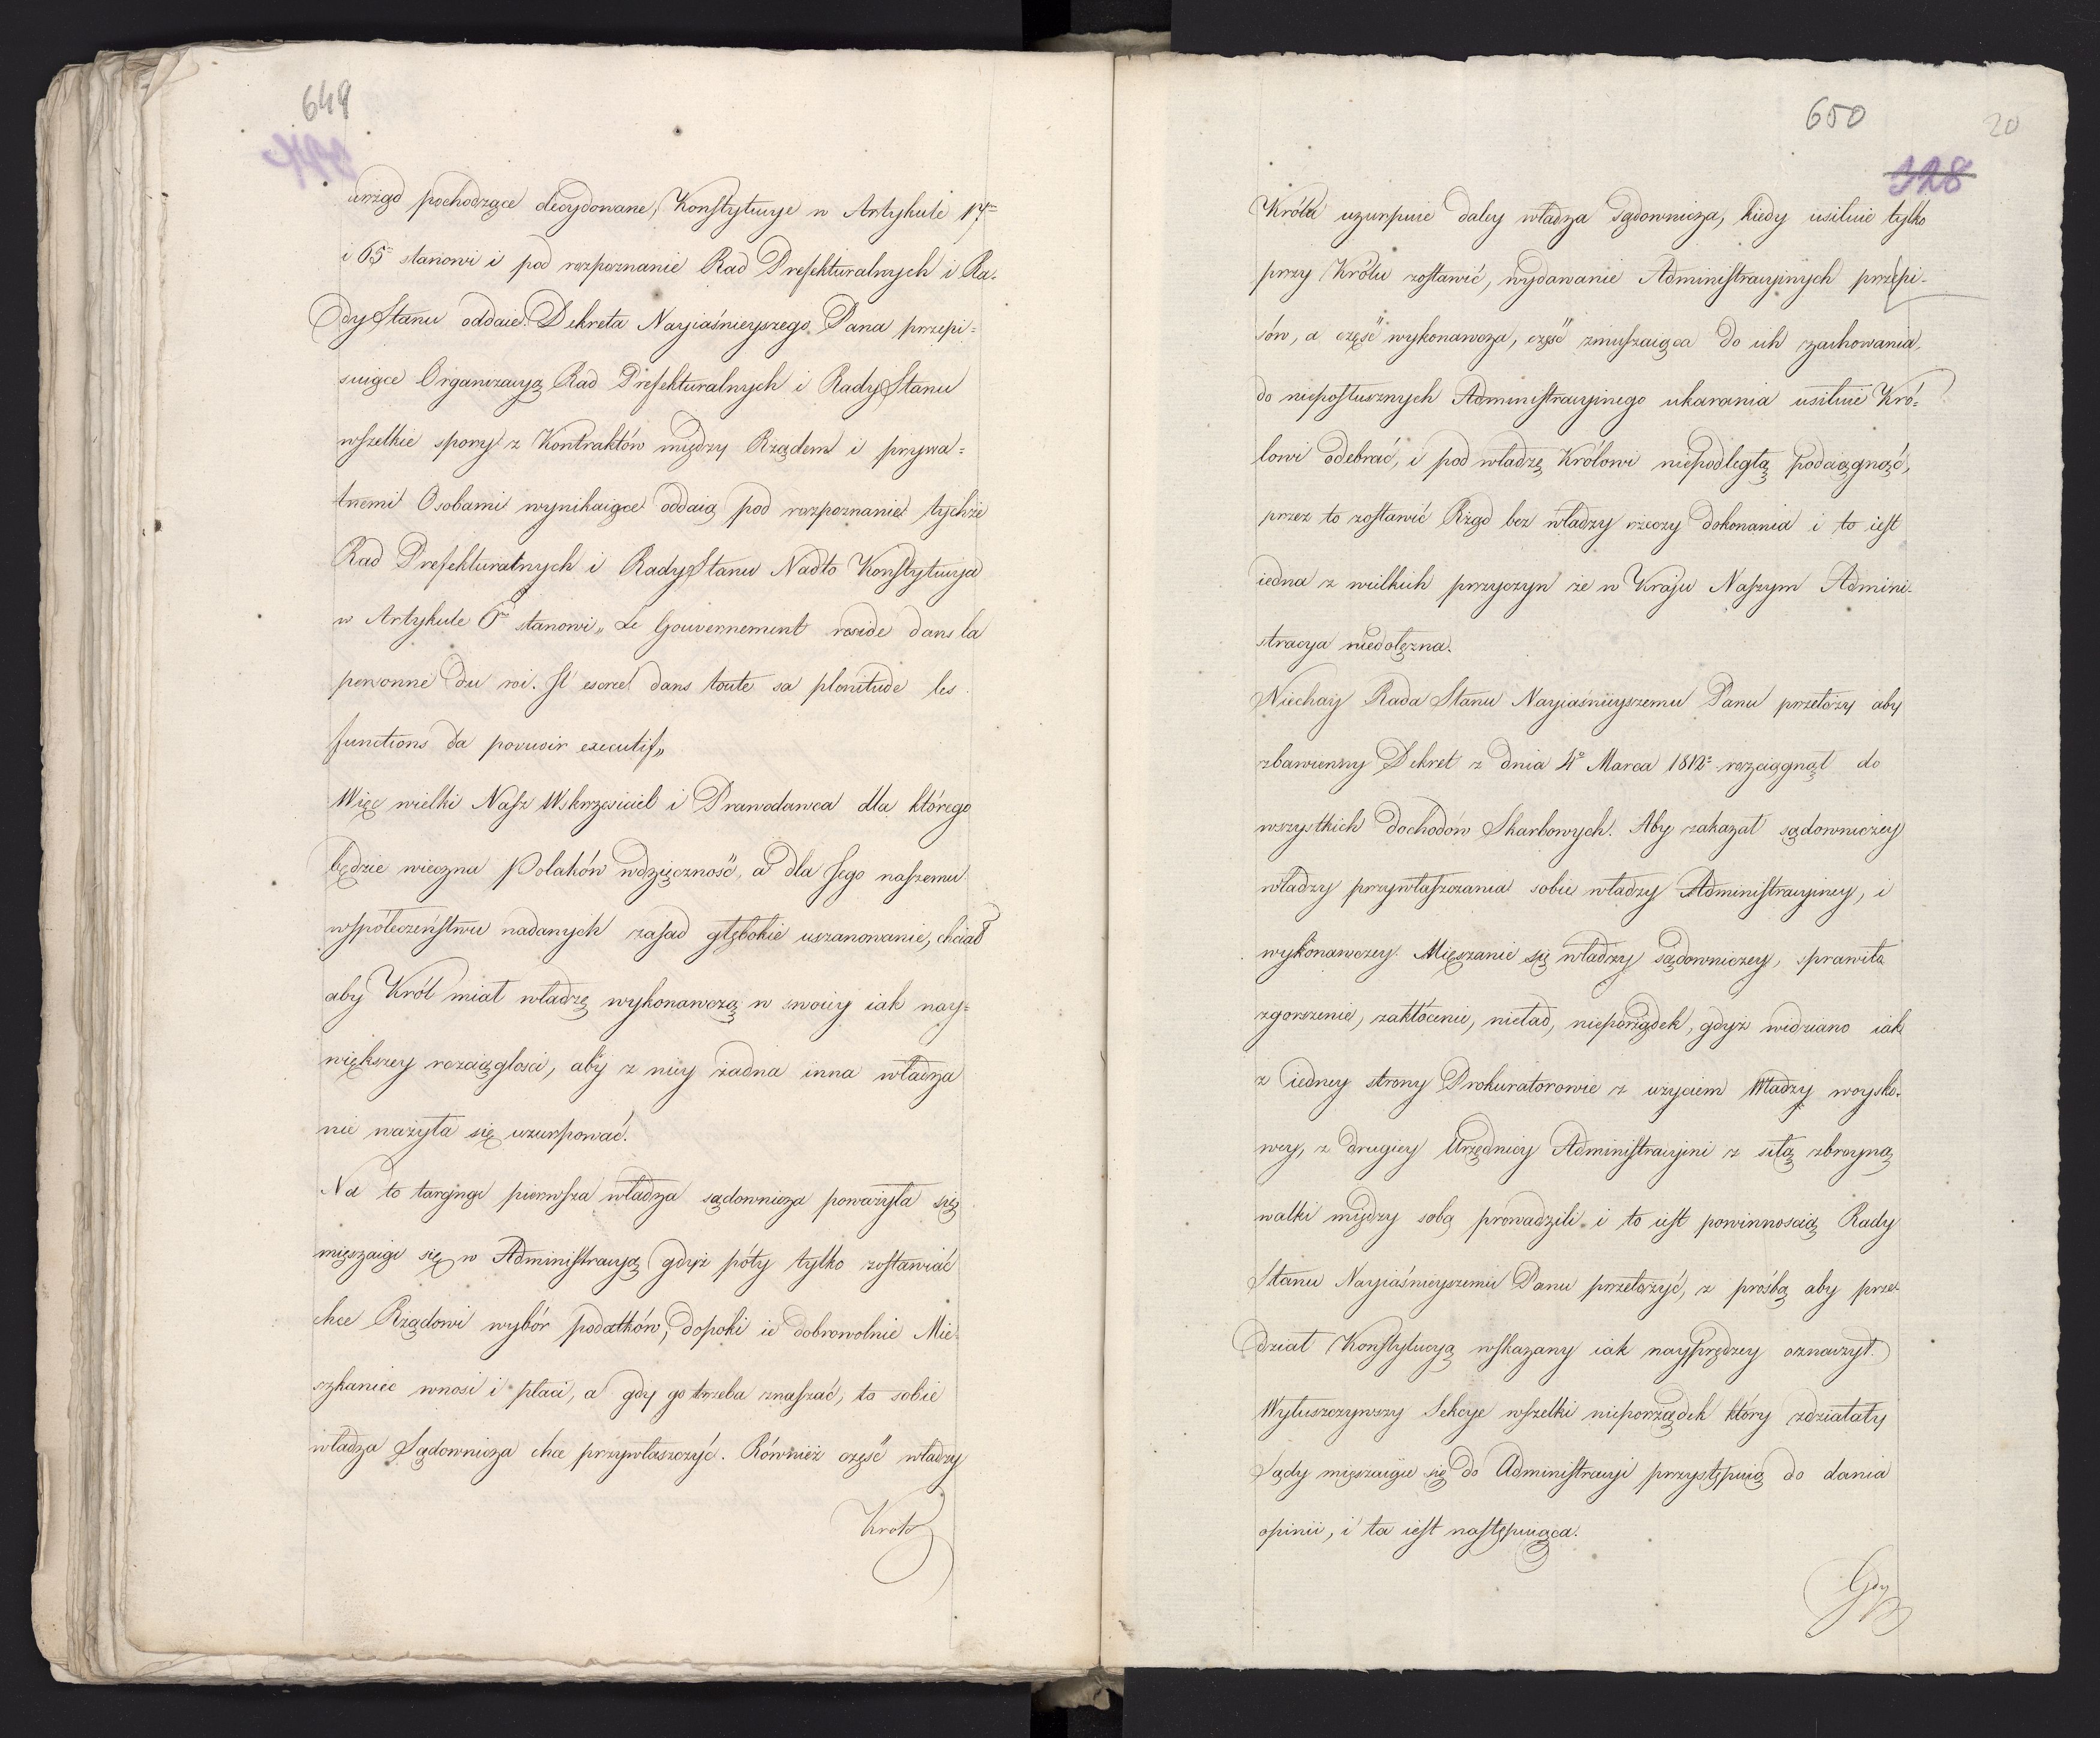 649
urząd pochodzące decydowane, Konstytucye w Artykule 17m
i 65m stanowi i pod rozpoznanie Rad Prefekturalnych i Ra-
dy Stanu oddaie. Dekreta Nayiaśnieyszego Pana przepi=
suiące Organizacyą Rad Prefekturalnych i Rady Stanu
wszelkie spory z Kontraktów między Rządem i prywa=
tnemi Osobami wynikaiące oddaią pod rozpoznanie tychże
Rad Prefekturalnych i Rady Stanu Nadto Konstytucya
w Artykule 6m stanowi „Le Gouvernement reside dans la
personne du roi. Il exerce dans toute sa plenitude les
functions da pouvoir executif„
Więc wielki Nasz Wskrzesiciel i Prawodawca dla którego
będzie wieczna Polaków wdzięczność, a dla Jego naszemu
współeczeństwu nadanych zasad głębokie uszanowanie, chciał
aby Król miał władzę wykonawczą w swoiey iak nay=
większey rozciągłosci, aby z niey żadna inna władza
nie ważyła się uzurpować.
Na to targnąc pierwsza władza sądownicza poważyła się
mięszaiąc się w Administracyą gdyż póty tylko zostawiać
chce Rządowi wybór podatków, dopoki ie dobrowolnie Mie-
szkaniec wnosi i płaci, a gdy go trzeba zmuszać, to sobie
władza Sądownicza chce przywłaszczyć. Również część władzy
Krola
650
20
328
Króla uzurpuie daley władza Sądownicza, kiedy usiłuie tylko
przy Królu zostawić, wydawanie Administracyinych przepi-
sów, a część wykonawcza, część zmuszaiąca do ich zachowania,
do nieposłusznych Administracyinego ukarania usiłuie Kró=
lowi odebrać, i pod władzę Królowi niepodległą podciągnąć,
przez to zostawić Rząd bez władzy rzeczy dokonania i to iest
iedna z wielkich przyczyn że w Kraju Naszym Admini-
stracya niedołężna.
Niechay Rada Stanu Nayiaśnieyszemu Panu przełoży aby
zbawienny Dekret z dnia 4o Marca 1812o rozciągnął do
wszystkich dochodów Skarbowych. Aby zakazał sądowniczey
władzy przywłaszczania sobie władzy Administracyiney, i
wykonawczey. Mięszanie się władzy sądowniczey, sprawiła
zgorszenie, zakłócenie, nieład, nieporządek, gdyż widziano iak
z iedney strony Prokuratorowie z użyciem Władzy woysko-
wey, z drugiey Urzędnicy Administracyini z siłą zbroyną
walki między sobą prowadzili i to iest powinnoscią Rady
Stanu Nayiaśnieyszemu Panu przełożyć, z prośbą aby prze-
dział Konstytucyą wskazany iak nayspędzey oznaczył.
Wyłuszczywszy Sekcye wszelki nieporządek który zdziałały
Sądy mięszaiące się do Administracyi przystępuią do dania
opinii, i ta iest następuiąca.
Gdy